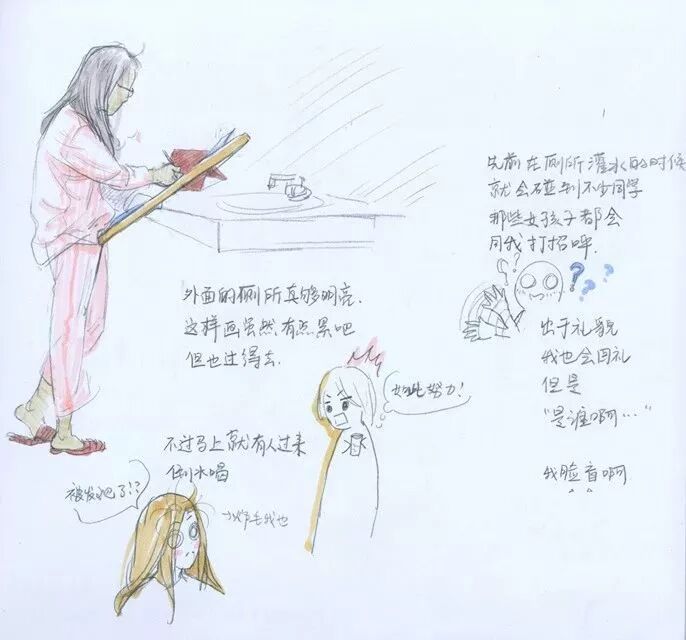 外面的厕所真够明亮.
这样画虽然有点累吧
但也过得去.
不过马上就有人过来
倒水喝
被发现了!?
如此努力!
先前在厕所灌水的时候
就会碰到不少同学
那些女孩子都会
同我打招呼.
???
出于礼貌
我也会回礼
但是
“是谁啊…”
我脸盲啊